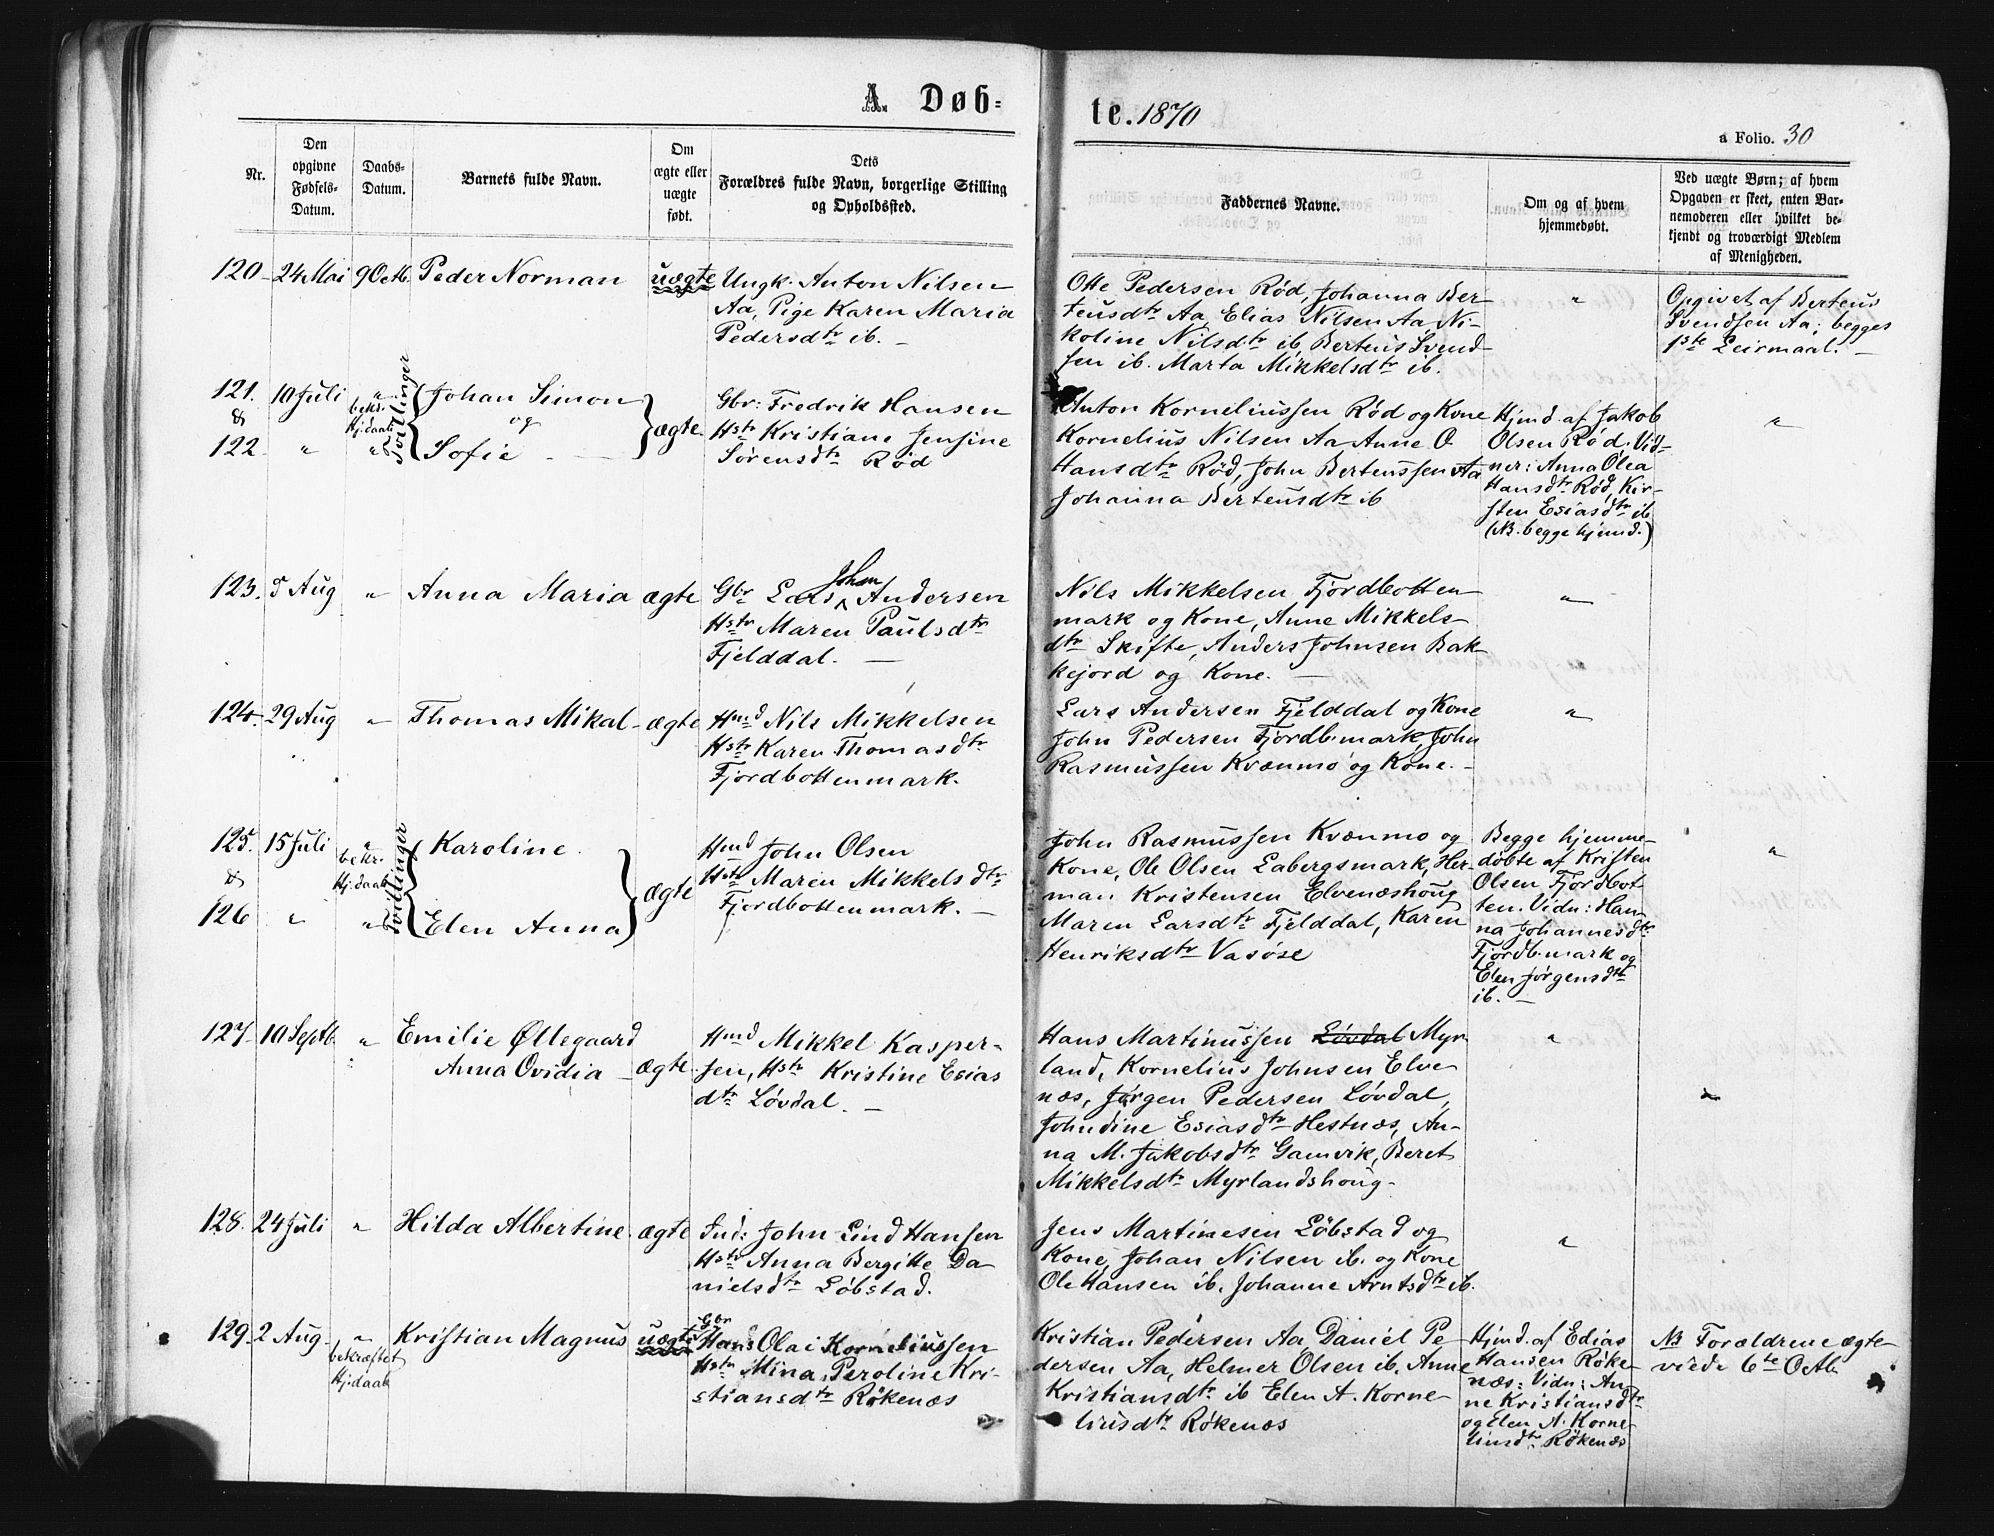 A. Døb=
te. 1870
a Folio. 30
Nr.
Den
opgivne
Fødsels-
Datum.
Daabs-
Datum.
Barnets fulde Navn.
Om
ægte eller
uægte
født.
Dets
Forældres fulde Navn, borgerlige Stilling
og Opholdssted.
Faddernes Navne.
Om og af hvem
hjemmedøbt.
Ved uægte Børn; af hvem
Opgaven er skeet, enten Bar-
nemoderen eller hvilket be-
kjendt og troværdigt Medlem
af Menigheden.
120 24 Mai 9 Octb. Peder Norman uægte
Ungk. Anton Nilsen
Aa, Pige Karen Maria
Pedersdtr ib. –
Otte Pedersen Rød, Johanna Ber-
teusdtr Aa, Elias Nilsen Aa, Ni-
koline Nilsdtr ib Berteus Svend-
sen ib. Marta Mikkelsdtr ib.
"
Opgivet af Berteus
Svendsen Aa; begges
1ste Leirmaal. –
121. 10 Juli "
&
122 " "
bekr.
Hj.daab
Tvillinger
Johan Simon
og
Sofie –
ægte
Gbr: Fredrik Hansen
Hstr Kristiane Jensine
Sørensdtr Rød
Anton Korneliussen Rød og Kone
Kornelius Nilsen Aa Anne O
Hansdtr Rød, John Berteussen Aa
Johanna Berteusdtr ib
Hjmd. af Jakob
Olsen Rød. Vid-
ner: Anna Olea
Hansdtr Rød, Kir-
sten Esiasdtr ib
(NB. begge hjemd.)
"
123. 5 Aug " Anna Maria ægte
Johan
Gbr Lars Andersen
Hstr Maren Paulsdtr
Fjelddal. –
Nils Mikkelsen Fjordbotten-
mark og Kone, Anne Mikkels-
dtr Skifte, Anders Johnsen Bak-
kejord og Kone. –
"
124. 29 Aug " Thomas Mikal ægte
Hmd Nils Mikkelsen
Hstr Karen Thomasdtr
Fjordbottenmark.
Lars Andersen Fjelddal og Kone
John Pedersen Fjordb.mark, John
Rasmussen Kvænmo og Kone. –
"
125. 15 Juli "
&
126 " "
bekr.
Hj.daab
Tvillinger
Karoline.
Elen Anna
ægte
Hmd John Olsen
Hstr Maren Mikkelsdtr
Fjordbottenmark. –
John Rasmussen Kvænmo og
Kone, Ole Olsen Labergsmark, Her-
man Kristensen Elvenæshoug
Maren Larsdtr Fjelddal, Karen
Henriksdtr Vasöse
Begge hjemme-
døbte af Kristen
Olsen Fjordbot-
ten. Vidn: Han-
na Johannesdtr
Fjordb.mark og
Elen Jørgensdtr
ib. –
"
127. 10 Septb. " Emilie Øllegaard
Anna Ovidia – ægte
Hmd Mikkel Kasper-
sen, Hstr Kristine Esias
dtr Løvdal. –
Hans Martinussen Løvdal Myr-
land, Kornelius Johnsen Elve-
næs, Jørgen Pedersen Løvdal,
Johndine Esiasdtr Hestnæs, An-
na M. Jakobsdtr Gamvik, Beret
Mikkelsdtr Myrlandshoug.
"
"
128. 24 Juli " Hilda Albertine ægte
Ind: John Lind Hansen
Hstr Anna Bergitte Da-
nielsdtr Løbstad.
Jens Martinesen Løbstad og
Kone, Johan Nilsen ib. og Kone
Ole Hansen ib. Johanne Arntsdtr ib.
"
129. 2 Aug. "
bekræftet
Hj.daab
Kristian Magnus uægte
Gbr
Hans Olai Korneliussen
Hstr Mina Peroline Kri-
stiansdtr Røkenæs
Kristian Pedersen Aa Daniel Pe-
dersen Aa, Helmer Olsen ib. Anne
Kristiansdtr ib Elen A. Korne-
liusdtr Røkenæs
Hjmd. af Edias
Hansen Røke-
næs: Vidn: An-
ne Kristiansdtr
og Elen A. Korne-
liusdtr Røkenæs
NB Forældrene ægte-
viede 6te Octb.